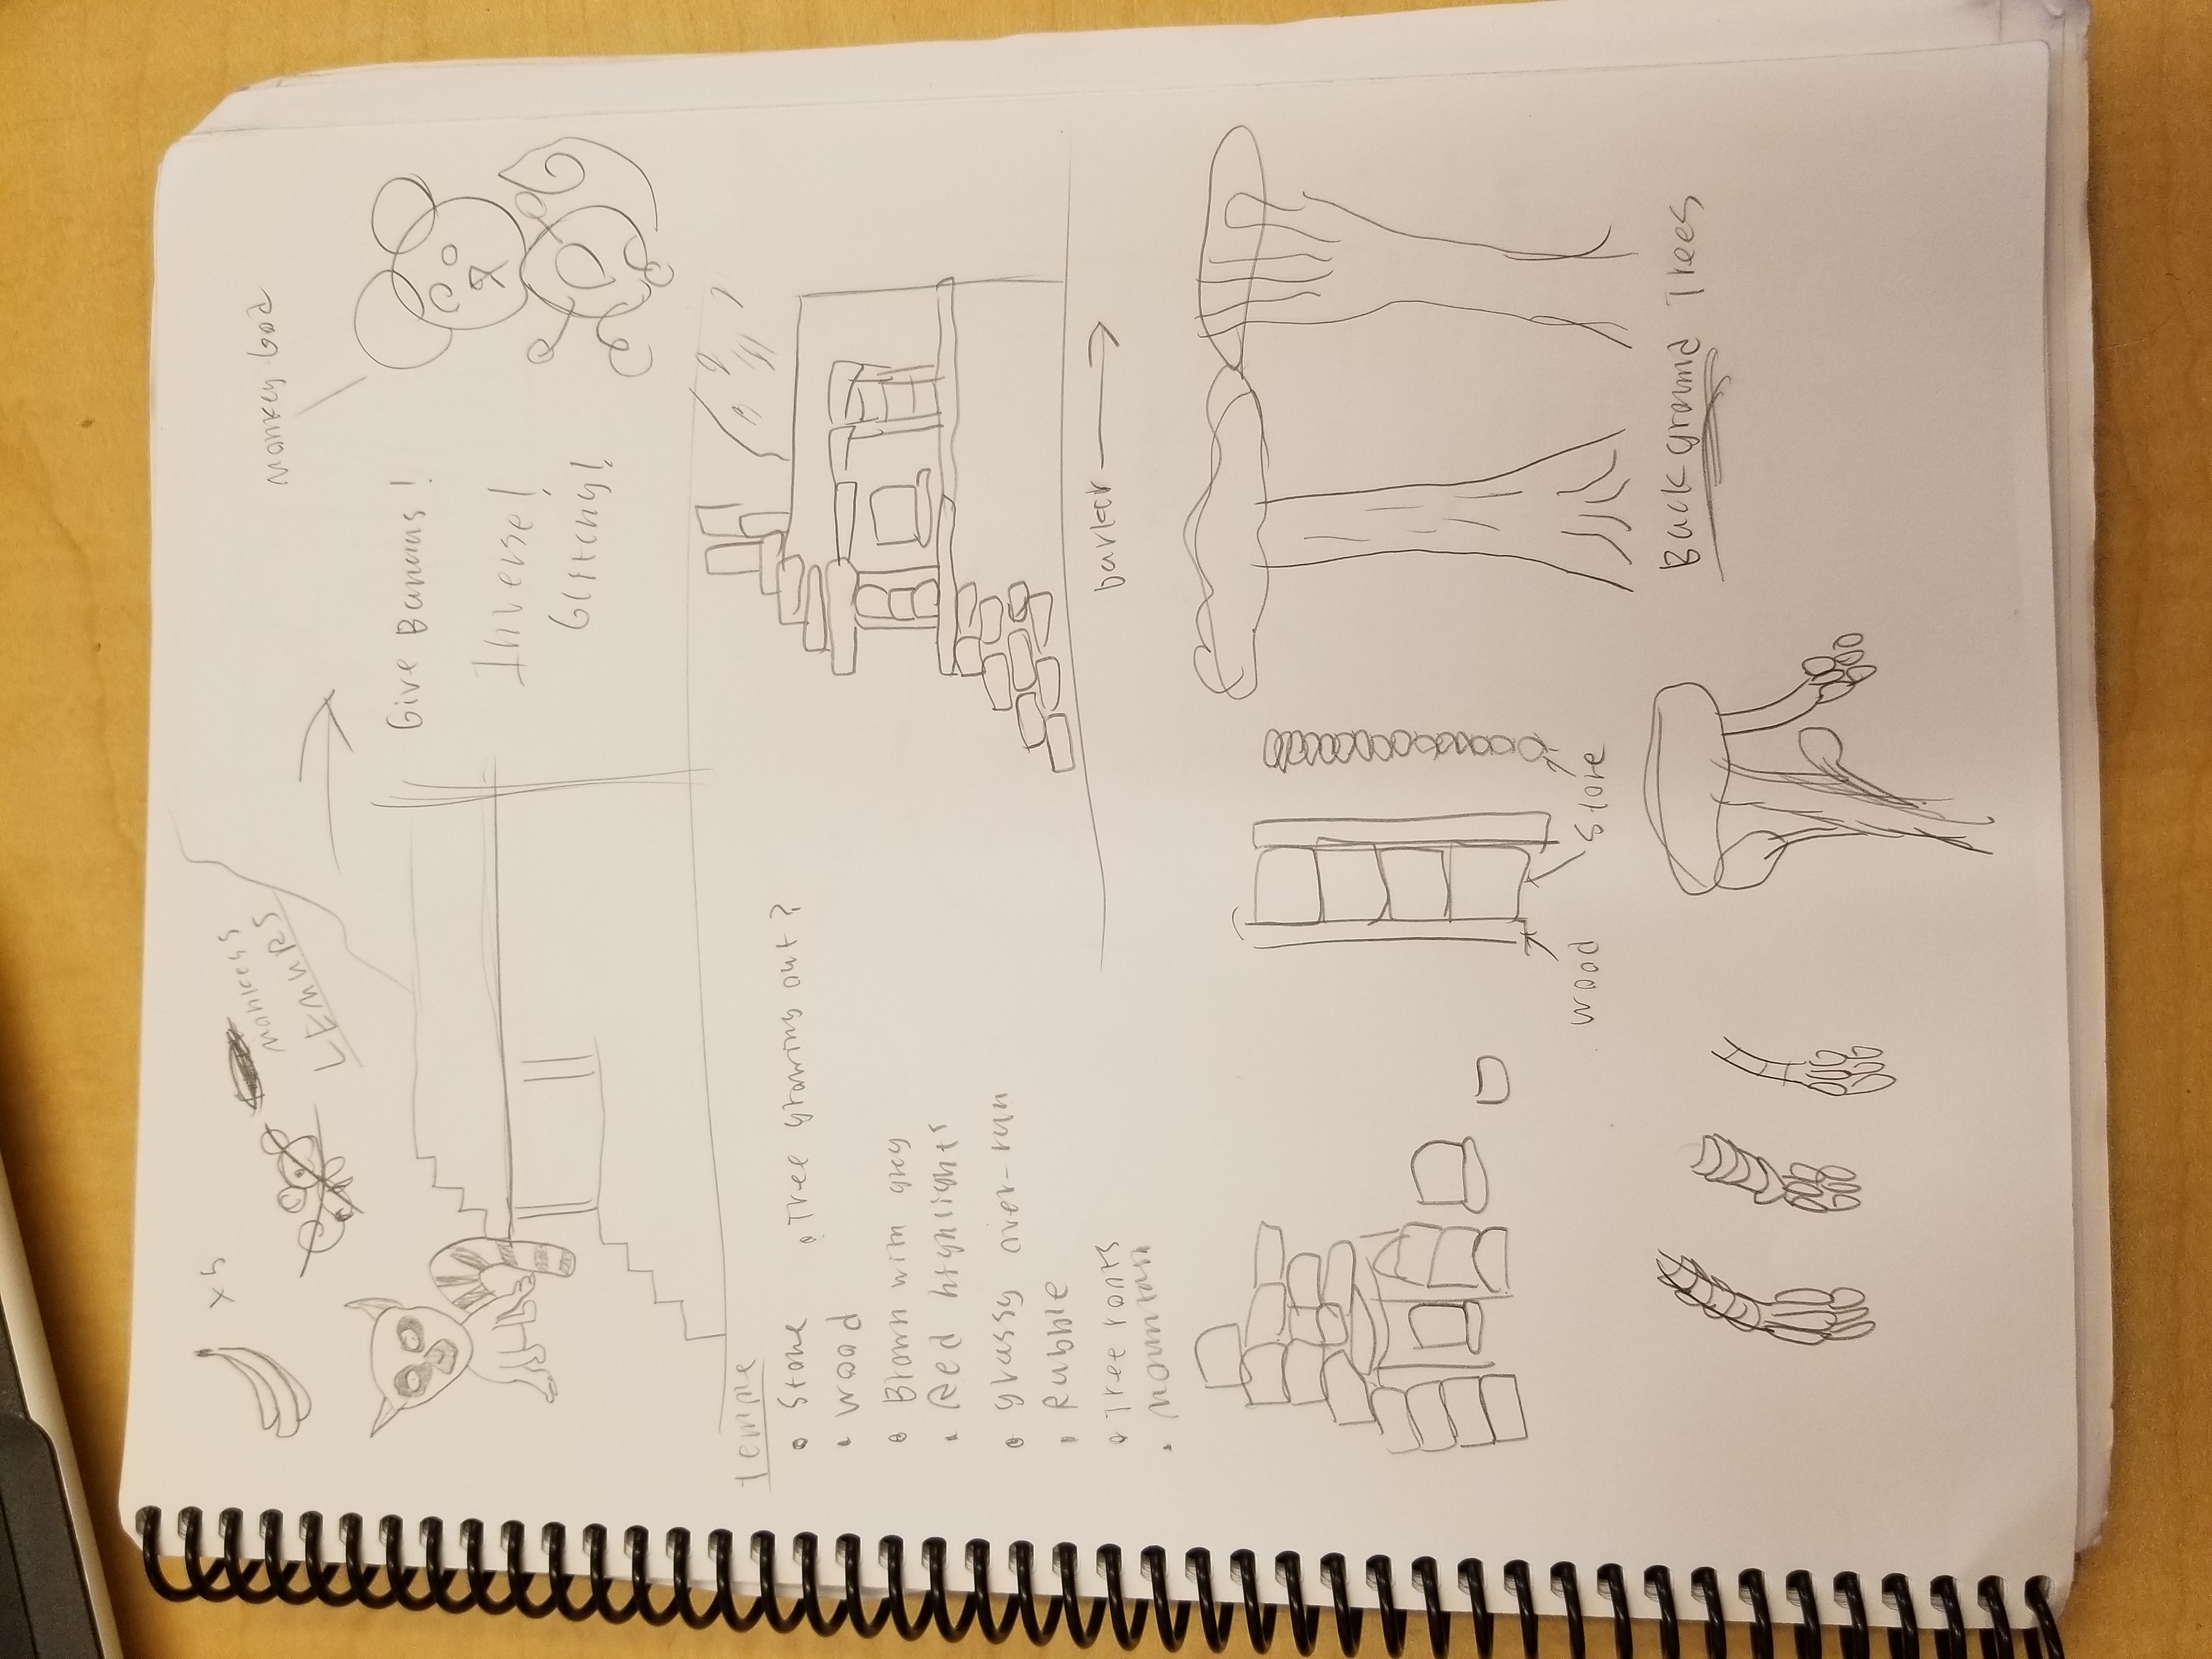 x5
Monkeys
LEMURS
Monkey God
Give Bananas!
Inverse!
Glitchy!
Temple
Stone
Tree growing out?
Wood
Brown with grey
Red highlights
grassy over-run
Rubble
Tree roots
Mountain
Wood
Background Trees